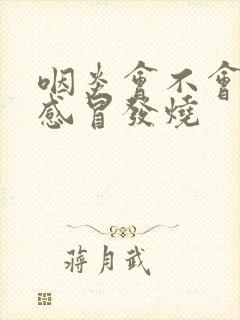 咽炎會不會
感冒發燒
蔣月武